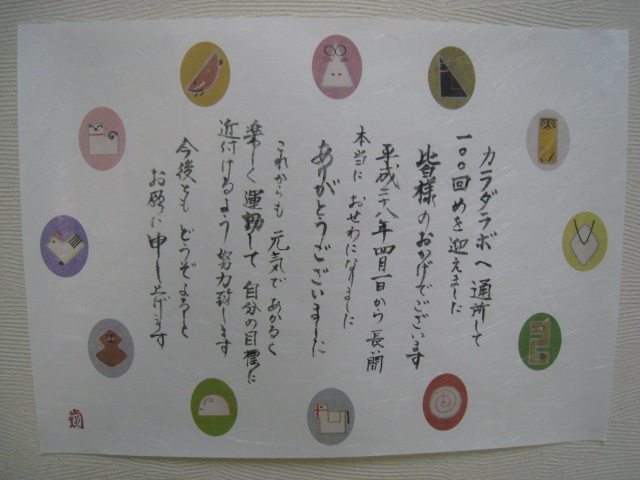 カラダラボへ 通所して
一〇〇回めを迎えました
皆様のおかげでございます
平成二八年四月一日から 長い間
本当に おせわになりました
ありがとうございました
これからも 元気で あかるく
楽しく 運動して 自分の目標に
近付けるよう 努力致します
今後とも どうぞよろしく
お願い 申し上げます